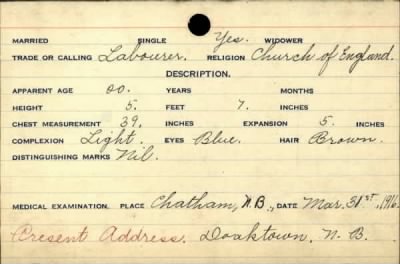 MARRIED SINGLE Yes. WIDOWER
TRADE OR CALLING Labourer. RELIGION Church of England.
DESCRIPTION.
APPARENT AGE YEARS MONTHS
HEIGHT 5. FEET 7. INCHES
CHEST MEASUREMENT 39. INCHES EXPANSION 5. INCHES
COMPLEXION Light. EYES Blue. HAIR Brown.
DISTINGUISHING MARKS Nil.
MEDICAL EXAMINATION. PLACE Chatham, N.B., DATE Mar. 31st, 1916.
Present Address. Doaktown, N. B.